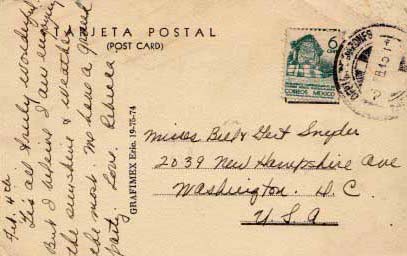 TARJETA POSTAL
(POST CARD)
6
CORREOS MEXICO
GRAFIMEX Eric. 19-75-74
Feb. 4th
It's all truly wonderful
But I believe I am enjoying
the sunshine & weather
the most. We have a grand
party. Love. Rebecca
Misses Bell & Gert Snyder
2039 New Hampshire Ave
Washington. D.C.
U.S.A